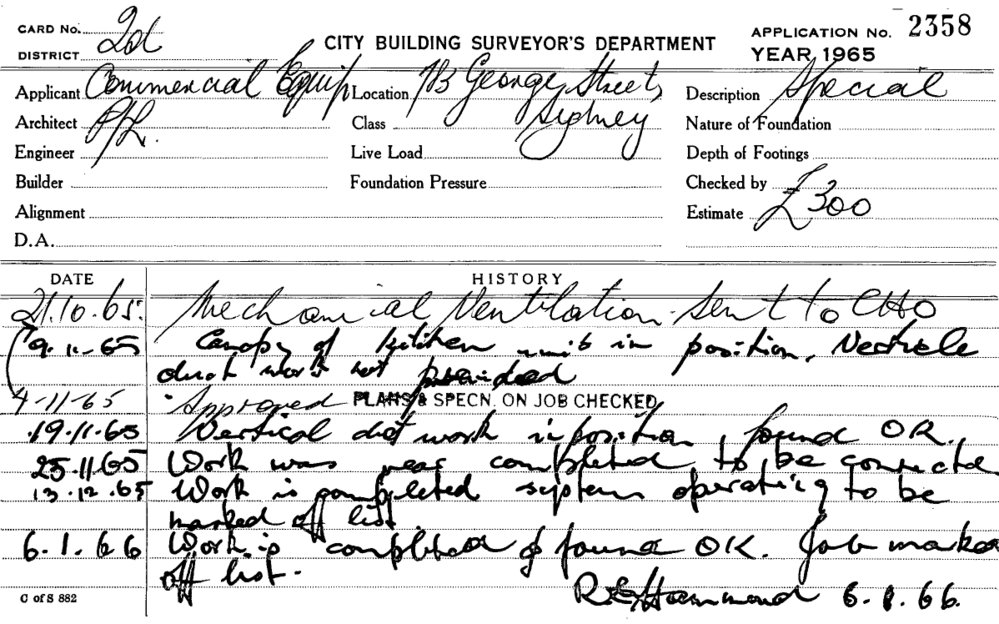 CARD No. 2d
DISTRICT
CITY BUILDING SURVEYOR'S DEPARTMENT
APPLICATION No. 2358
YEAR, 1965
Applicant Commercial Equip Location 713 George Street, Description Special
Architect P/L. Class Sydney Nature of Foundation
Engineer Live Load Depth of Footings
Builder Foundation Pressure Checked by
Alignment Estimate £300
D.A.
DATE HISTORY
21.10.65. Mechanical Ventilation. Sent to CHO
9.11.65 Canopy of kitchen unit in position,
duct work not provided
4-11-65 Approved PLANS & SPECN. ON JOB CHECKED
19.11.65 Vertical duct work in position, found OK.
25.11.65 Work was near completed to be
13.12.65 Work is completed system operating to be
marked off list.
6.1.66 Work is completed & found OK. Job
off list.
C of S 882 R. Hammond 6.1.66.